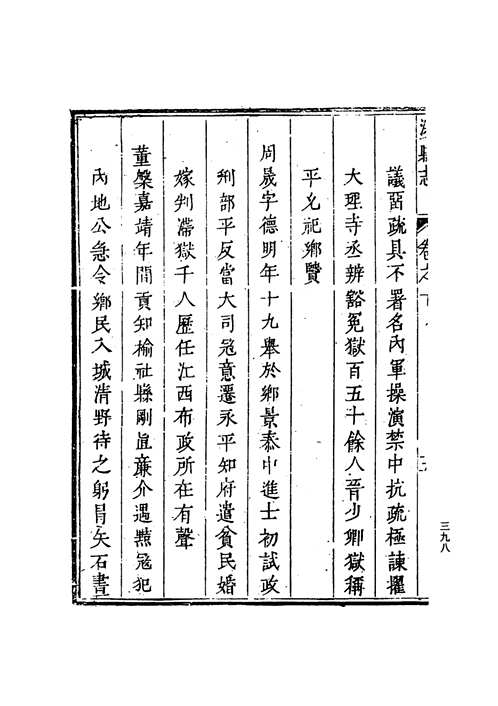 縣志
卷之下
議留疏具不署名內軍操演禁中抗疏極諫擢
大理寺丞辨豁冤獄百五十餘人晉少卿獄稱
平允祀鄉賢
周晟字德明年十九舉於鄉景泰中進士初試政
刑部平反當大司冦意遷永平知府遣貧民婚
嫁判滯獄千人歷任江西布政所在有聲
董槃嘉靖年間貢知榆社縣剛直㢘介遇㸃冦犯
內地公急令鄉民入城清野待之躬冐矢石晝
三九八